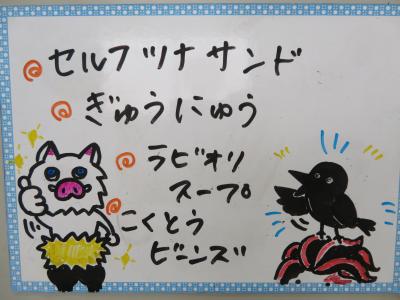 セルフツナサンド
ぎゅうにゅう
ラビオリ
スープ
こくとう
ビーンズ